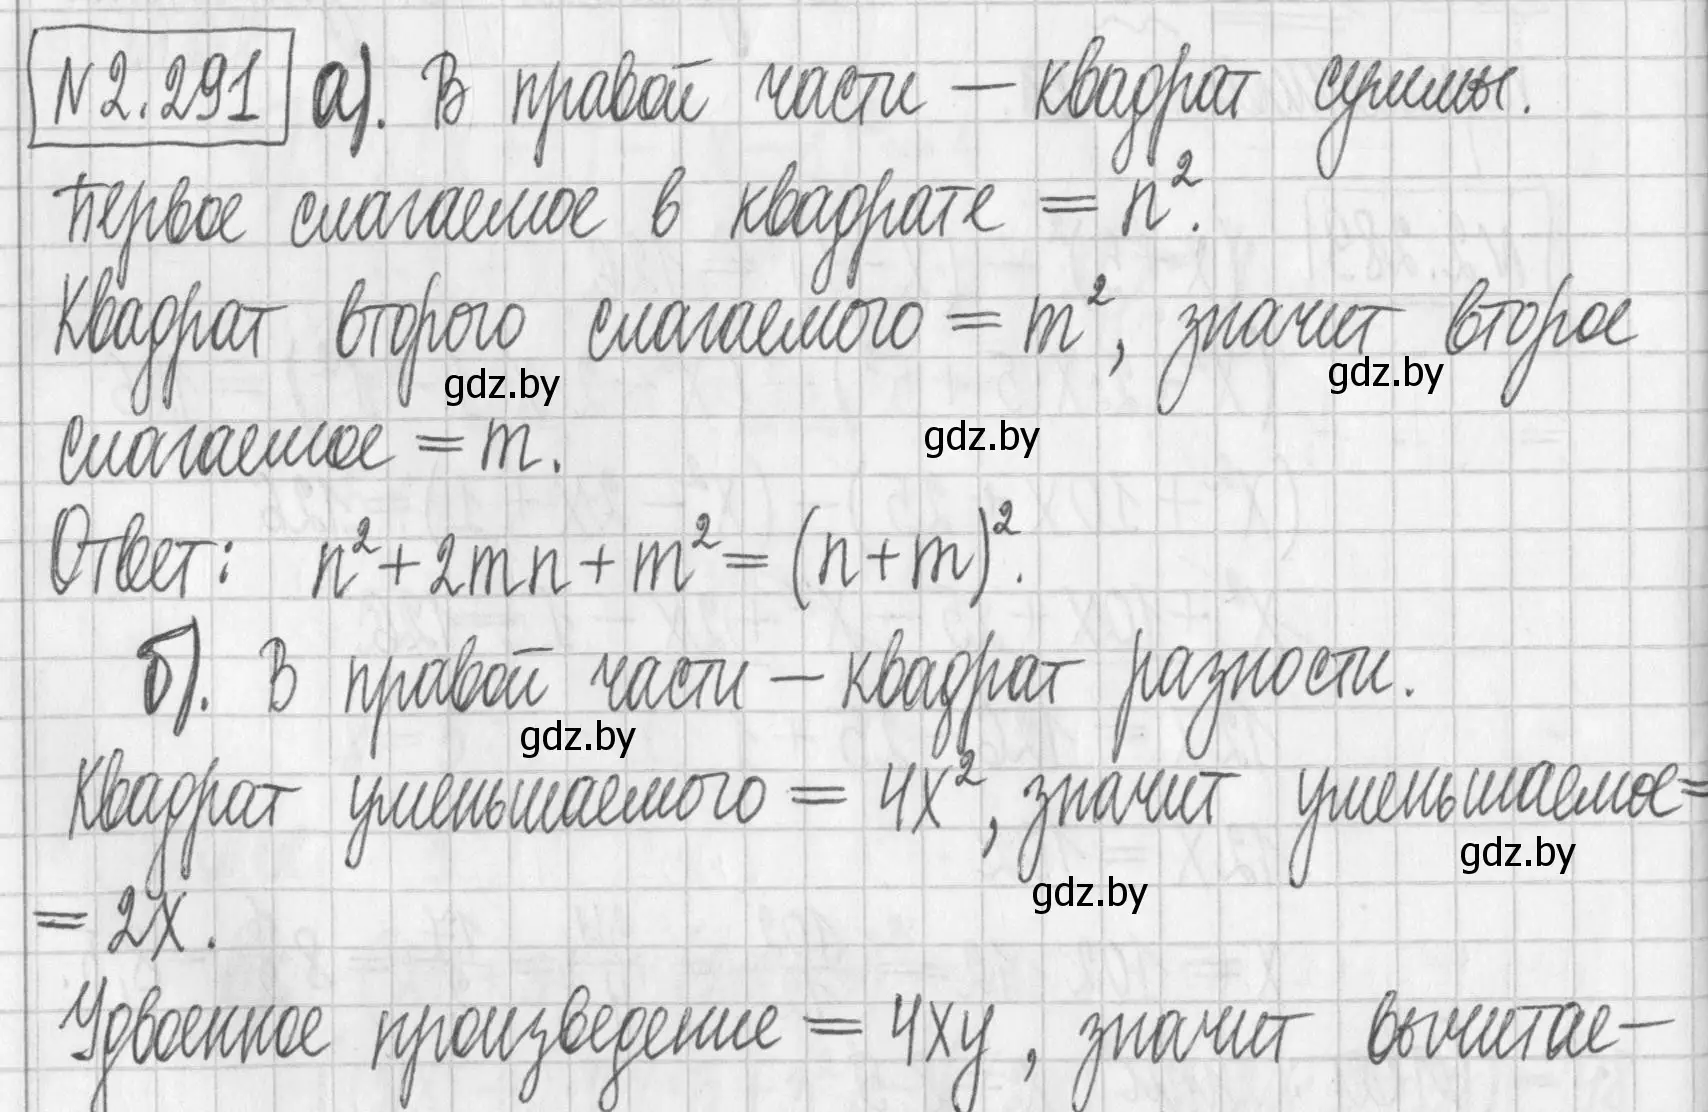 №2.291 а). В правой части – квадрат суммы.
Первое слагаемое в квадрате = n².
Квадрат второго слагаемого = m², значит второе
gdz.by gdz.by
слагаемое = m.
gdz.by
Ответ: n²+2mn+m²=(n+m)².
б). В правой части – квадрат разности.
gdz.by
Квадрат уменьшаемого = 4x², значит уменьшаемое=
gdz.by
gdz.by
= 2x.
Удвоенное произведение = 4xy, значит вычитае–